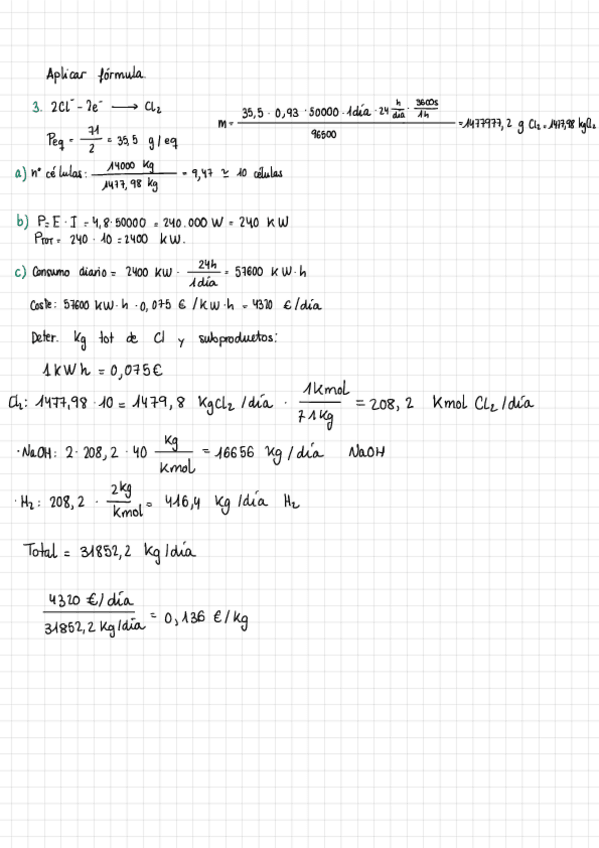 Aplicar fórmula.
3. 2Cl⁻ - 2e⁻ ⟶ Cl₂
Peq = 71/2 = 35,5 g/eq
m = (35,5 · 0,93 · 50000 · 1día · 24 h/día · 3600s/1h) / 96500 = 1477977,2 g Cl₂ = 1477,98 kgCl₂
a) nº células: 14000 Kg / 1477,98 kg = 9,47 ≃ 10 células
b) P = E · I = 4,8 · 50000 = 240.000 W = 240 KW
PTOT = 240 · 10 = 2400 kW.
c) Consumo diario = 2400 KW · 24h/1día = 57600 KW·h
Coste: 57600 KW·h · 0,075 € /KW·h = 4320 €/día
Deter. Kg tot de Cl y subproductos:
1 kWh = 0,075€
Cl₂: 1477,98 · 10 = 1479,8 KgCl₂/día · 1Kmol/71Kg = 208,2 Kmol CL₂/día
· NaOH: 2 · 208,2 · 40 Kg/Kmol = 16656 Kg/día NaOH
· H₂: 208,2 · 2kg/Kmol = 416,4 Kg/día H₂
Total = 31852,2 Kg/día
4320 €/día / 31852,2 Kg/día = 0,136 €/kg